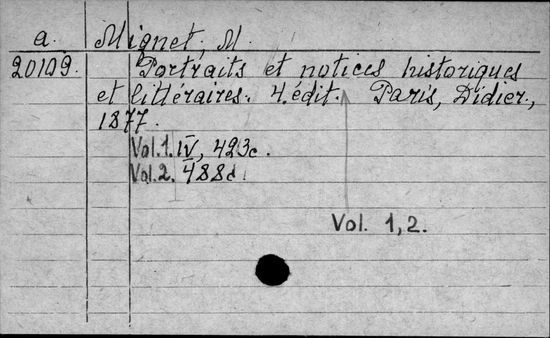 a. Mignet, M.
20109. Portraits et notices historiques
et littéraires. 4. édit. Paris, Didier.,
1877.
Vol. 1. IV, 423c.
Vol. 2. 488d.
Vol. 1, 2.